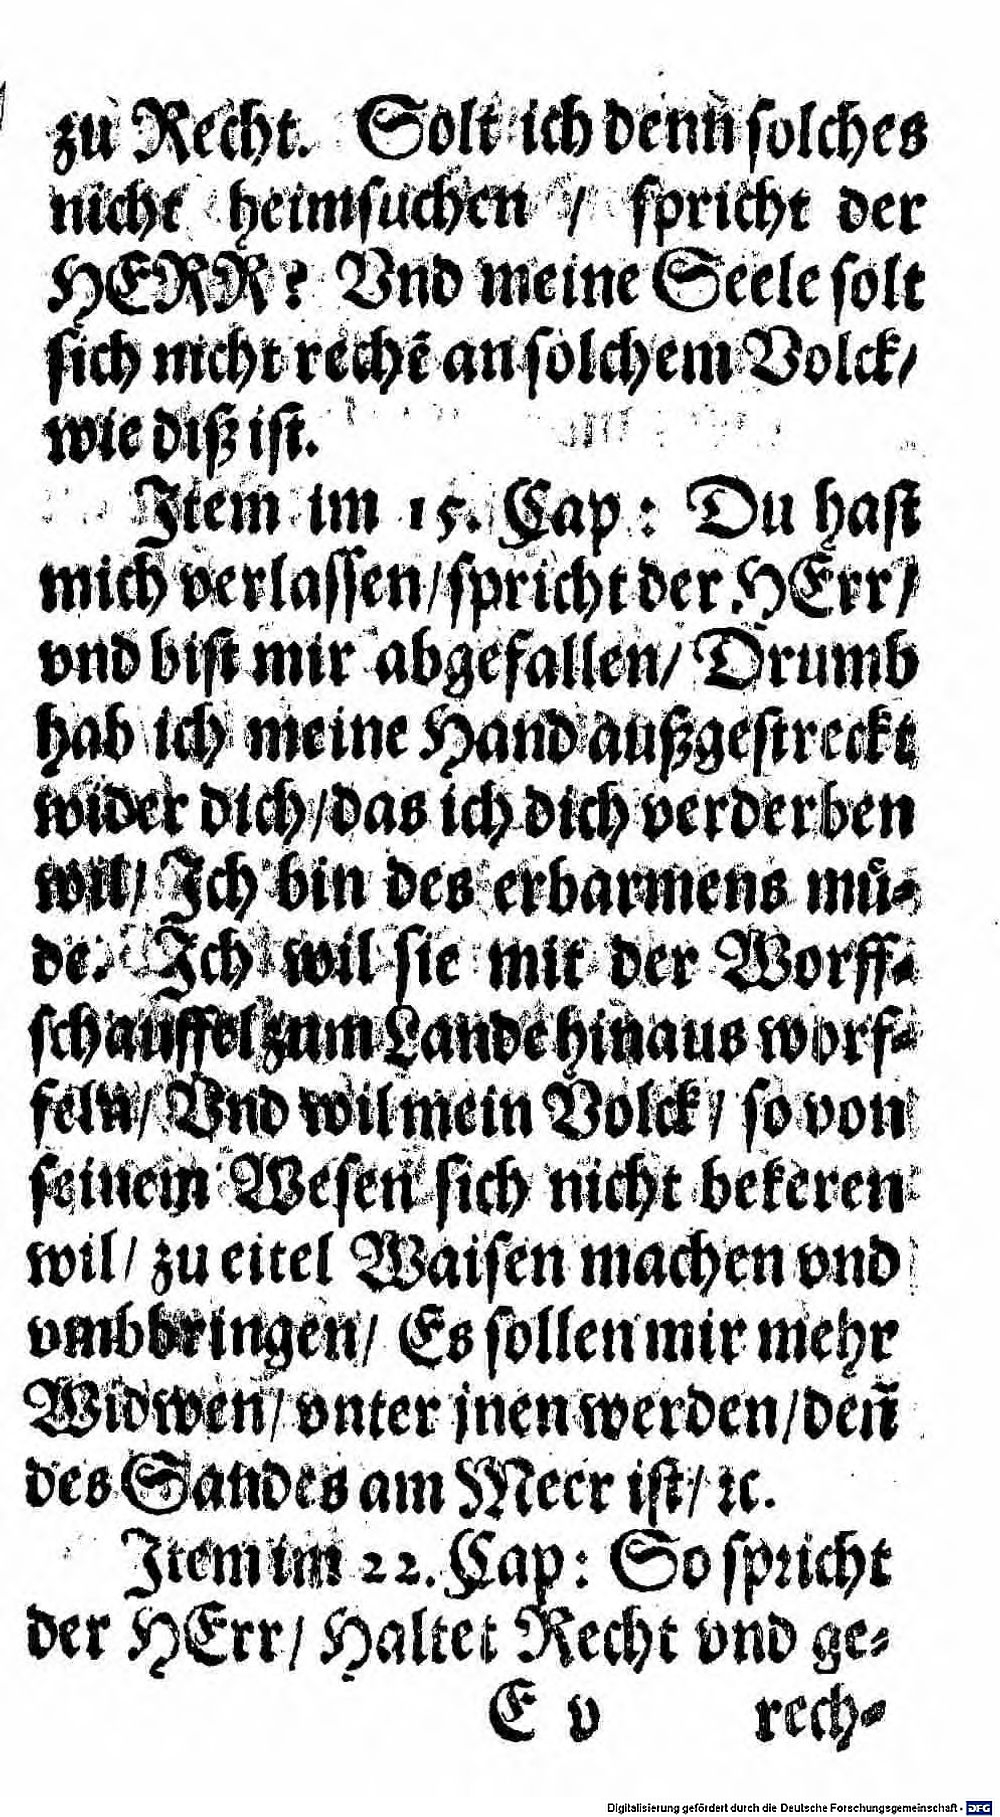 zu Recht. Solt ich denn solches
nicht heimsuchen / spricht der
HERR? Vnd meine Seele solt
sich nicht rechẽ an solchem Volck/
wie diß ist.
Item im 15. Cap: Du hast
mich verlassen/ spricht der HErr/
vnd bist mir abgefallen/ Drumb
hab ich meine Hand außgestreckt
wider dich/ das ich dich verderben
wil/ Ich bin des erbarmens mü-
de. Ich wil sie mit der Worff-
schauffel zum Lande hinaus worf-
feln/ Vnd wil mein Volck/ so von
seinem Wesen sich nicht bekeren
wil/ zu eitel Waisen machen vnd
vmbbringen/ Es sollen mir mehr
Widwen/ vnter jnen werden/ deñ
des Sandes am Meer ist/ ꝛc.
Item im 22. Cap: So spricht
der HErr/ Haltet Recht vnd ge-
E v rech-
Digitalisierung gefördert durch die Deutsche Forschungsgemeinschaft - DFG